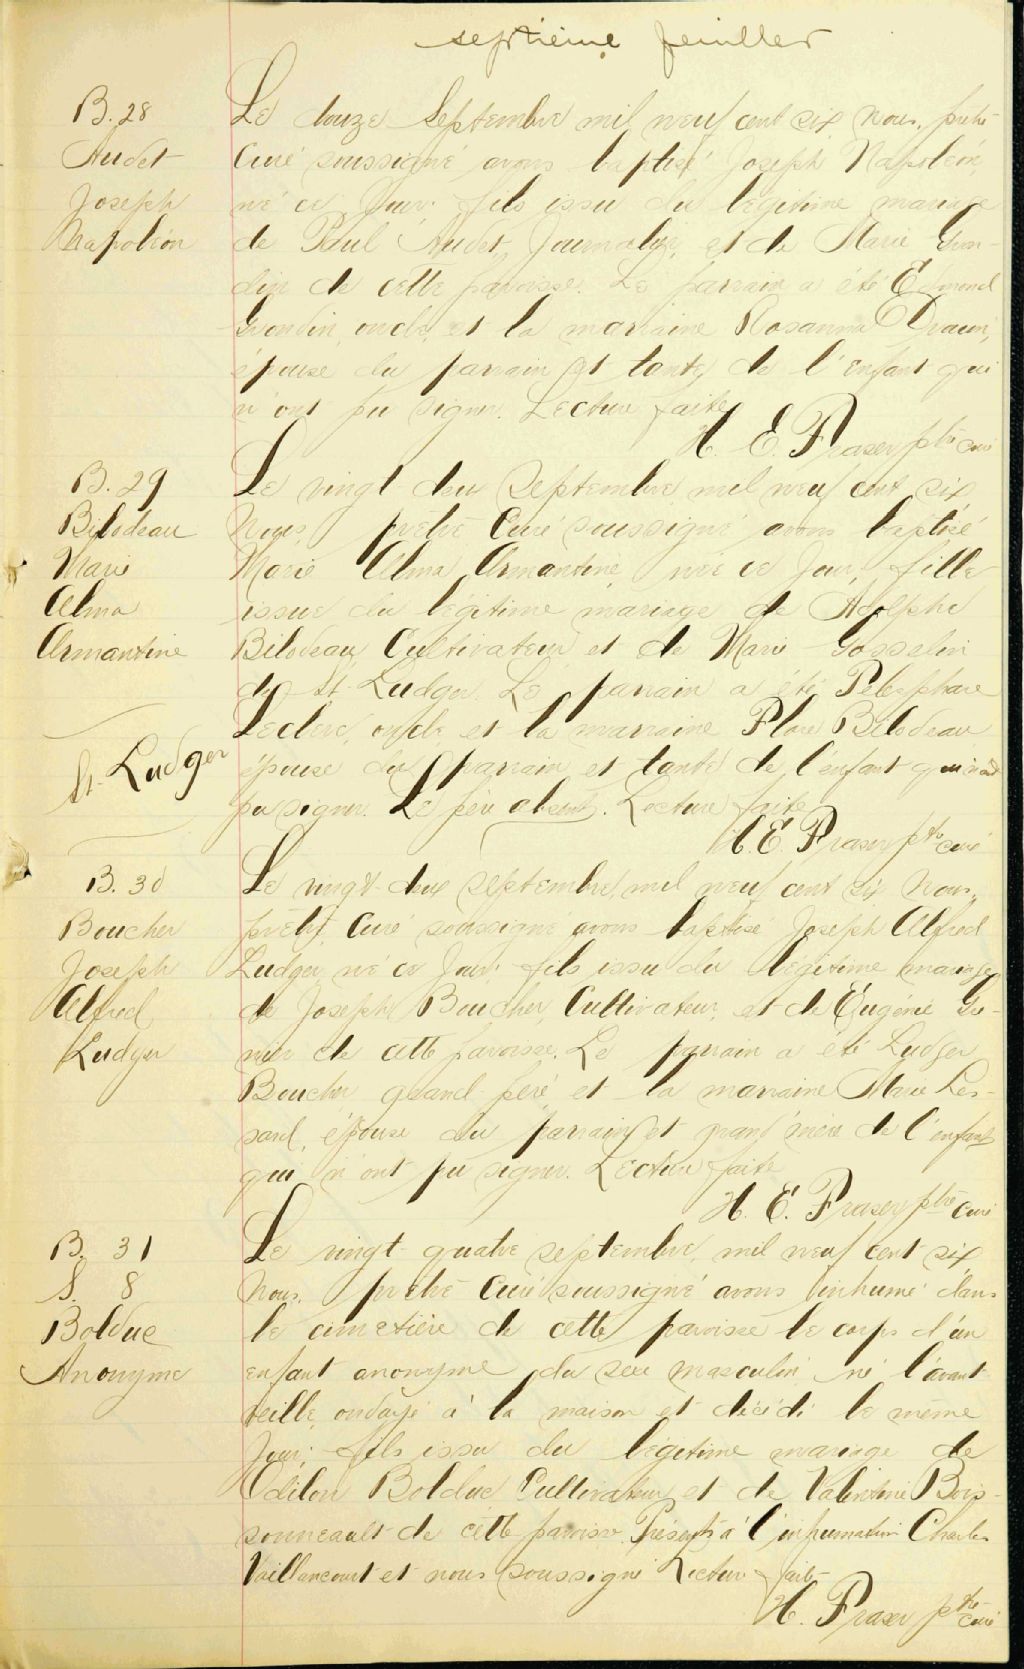 septième feuillet
B. 28
Audet
Joseph
Napoléon
Le douze Septembre mil neuf cent six Nous, prêtre
Curé soussigné avons baptisé Joseph Napoléon,
né ce jour, fils issu du légitime mariage
de Paul Audet, Journalier, et de Marie Gron-
din de cette paroisse. Le parrain a été Edmond
Grondin, oncle, et la marraine Rosanna Drouin,
épouse du parrain et tante de l'enfant qui
n'ont pu signer. Lecture faite
H. E. Fraser ptre curé
B. 29
Bilodeau
Marie
Alma
Armantine
St. Ludger
Le vingt deux Septembre mil neuf cent six
Nous, prêtre Curé soussigné avons baptisé
Marie Alma Armantine, née ce jour, fille
issue du légitime mariage de Adolphe
Bilodeau, Cultivateur, et de Marie Gosselin
de St. Ludger. Le parrain a été Télesphore
Leclerc, oncle et la marraine Flore Bilodeau
épouse du parrain et tante de l'enfant qui n'ont
pu signer. Le père absent. Lecture faite
H. E. Fraser ptre curé
B. 30
Boucher
Joseph
Alfred
Ludger
Le vingt-deux septembre, mil neuf cent six, Nous,
prêtre, Curé soussigné avons baptisé Joseph Alfred
Ludger, né ce jour, fils issu du légitime mariage
de Joseph Boucher, Cultivateur, et de Eugénie Gre-
nier de cette paroisse. Le parrain a été Ludger
Boucher grand-père, et la marraine Marie Les-
sard, épouse du parrain et grand'mère de l'enfant
qui n'ont pu signer. Lecture faite
H. E. Fraser ptre curé
B. 31
S. 8
Bolduc
Anonyme
Le vingt-quatre septembre, mil neuf cent six
Nous, prêtre Curé soussigné avons inhumé dans
le cimetière de cette paroisse le corps d'un
enfant anonyme du sexe masculin né l'avant
veille, ondoyé à la maison et décédé le même
jour, fils issu du légitime mariage de
Odilon Bolduc, Cultivateur, et de Valentine Bois-
sonneault de cette paroisse. Présents à l'inhumation Charles
Vaillancourt et nous soussigné Lecture faite
H. Fraser ptre curé